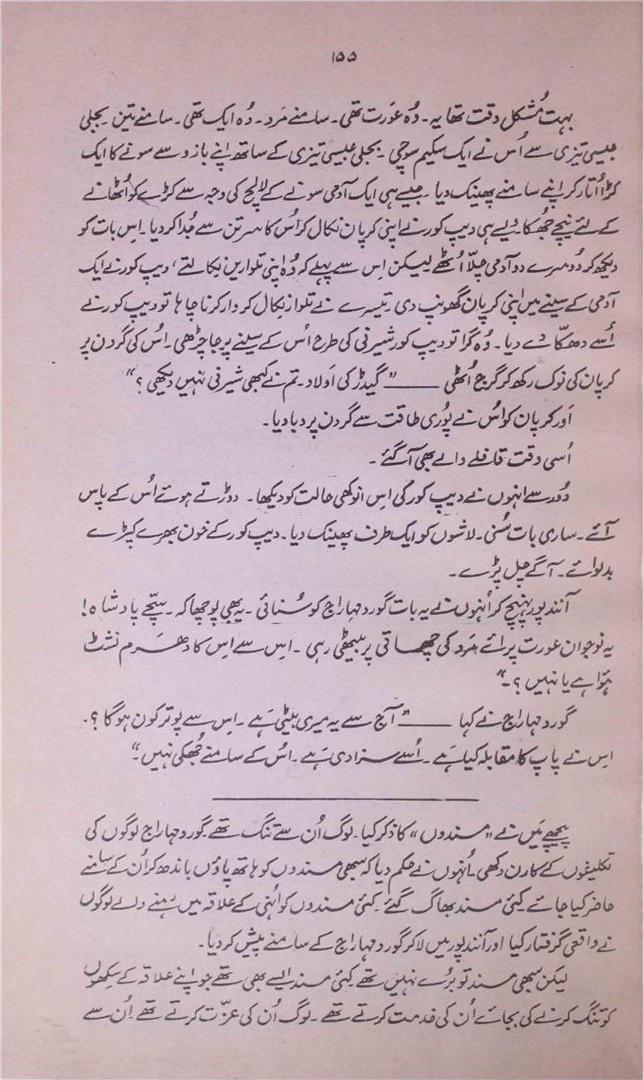 ۱۵۵
بہت مُشکل وقت تھا یہ۔ وُہ عورت تھی۔ سامنے مرد۔ وُہ ایک تھی۔ سامنے تین۔ بجلی
جیسی تیزی سے اُس نے ایک سکیم سوچی۔ بجلی جیسی تیزی کے ساتھ اپنے بازو سے سونے کا ایک
کڑا اُتار کر اپنے سامنے پھینک دیا۔ جیسے ہی ایک آدمی سونے کے لالچ کی وجہ سے کڑے کو اُٹھانے
کے لئے نیچے جُھکا۔ ویسے ہی دیپ کور نے اپنی کرپان نکال کر اُس کا سر تن سے جُدا کر دیا۔ اس بات کو
دیکھ کر دُوسرے دو آدمی چِلّا اُٹھے لیکن اس سے پہلے کہ وُہ اپنی تلواریں نکالتے، دیپ کور نے ایک
آدمی کے سینے میں اپنی کرپان گھونپ دی۔ تیسرے نے تلوار نکال کر وار کرنا چاہا تو دیپ کور نے
اُسے دھکّا دے دیا۔ وُہ گرا تو دیپ کور شیرنی کی طرح اس کے سینے پر جا چڑھی۔ اُس کی گردن پر
کرپان کی نوک رکھ کر گرج اُٹھی ــــــ "گیدڑ کی اولاد۔ تم نے کبھی شیرنی نہیں دیکھی؟"
اور کرپان کو اُس نے پُوری طاقت سے گردن پر دبا دیا۔
اُسی وقت قافلے والے بھی آ گئے۔
دُور سے انہوں نے دیپ کور کی اس انوکھی حالت کو دیکھا۔ دوڑتے ہوئے اُس کے پاس
آئے۔ ساری بات سُنی۔ لاشوں کو ایک طرف پھینک دیا۔ دیپ کور کے خون بھرے کپڑے
بدلوائے۔ آگے چل پڑے۔
آنند پور پہنچ کر اُنہوں نے یہ بات گورو مہاراج کو سُنائی۔ یہ بھی پوچھا کہ۔ سچّے پادشاہ!
یہ نوجوان عورت پرائے مرد کی چھاتی پر بیٹھی رہی۔ اس سے اس کا دھرم نشٹ
ہُوا ہے یا نہیں؟۔"
گورو مہاراج نے کہا ــــــ "آج سے یہ میری بیٹی ہے۔ اس سے پوتر کون ہو گا؟۔
اس نے پاپ کا مقابلہ کیا ہے۔ اُسے سزا دی ہے۔ اُس کے سامنے جُھکی نہیں۔"
پیچھے میں نے "مسندوں" کا ذکر کیا۔ لوگ اُن سے تنگ تھے۔ گورو مہاراج لوگوں کی
تکلیفوں کے کارن دکھی۔ اُنہوں نے حکم دیا کہ سبھی مسندوں کو ہاتھ پاؤں باندھ کر اُن کے سامنے
حاضر کیا جائے۔ کئی مسند بھاگ گئے۔ کئی مسندوں کو اُنہی کے علاقہ میں رہنے والے لوگوں
نے واقعی گرفتار کیا اور آنند پور میں لا کر گورو مہاراج کے سامنے پیش کر دیا۔
لیکن سبھی مسند تو بُرے نہیں تھے۔ کئی مسند ایسے بھی تھے جو اپنے علاقہ کے سِکھوں
کو تنگ کرنے کی بجائے اُن کی خدمت کرتے تھے۔ لوگ اُن کی عزّت کرتے تھے۔ اِن سے